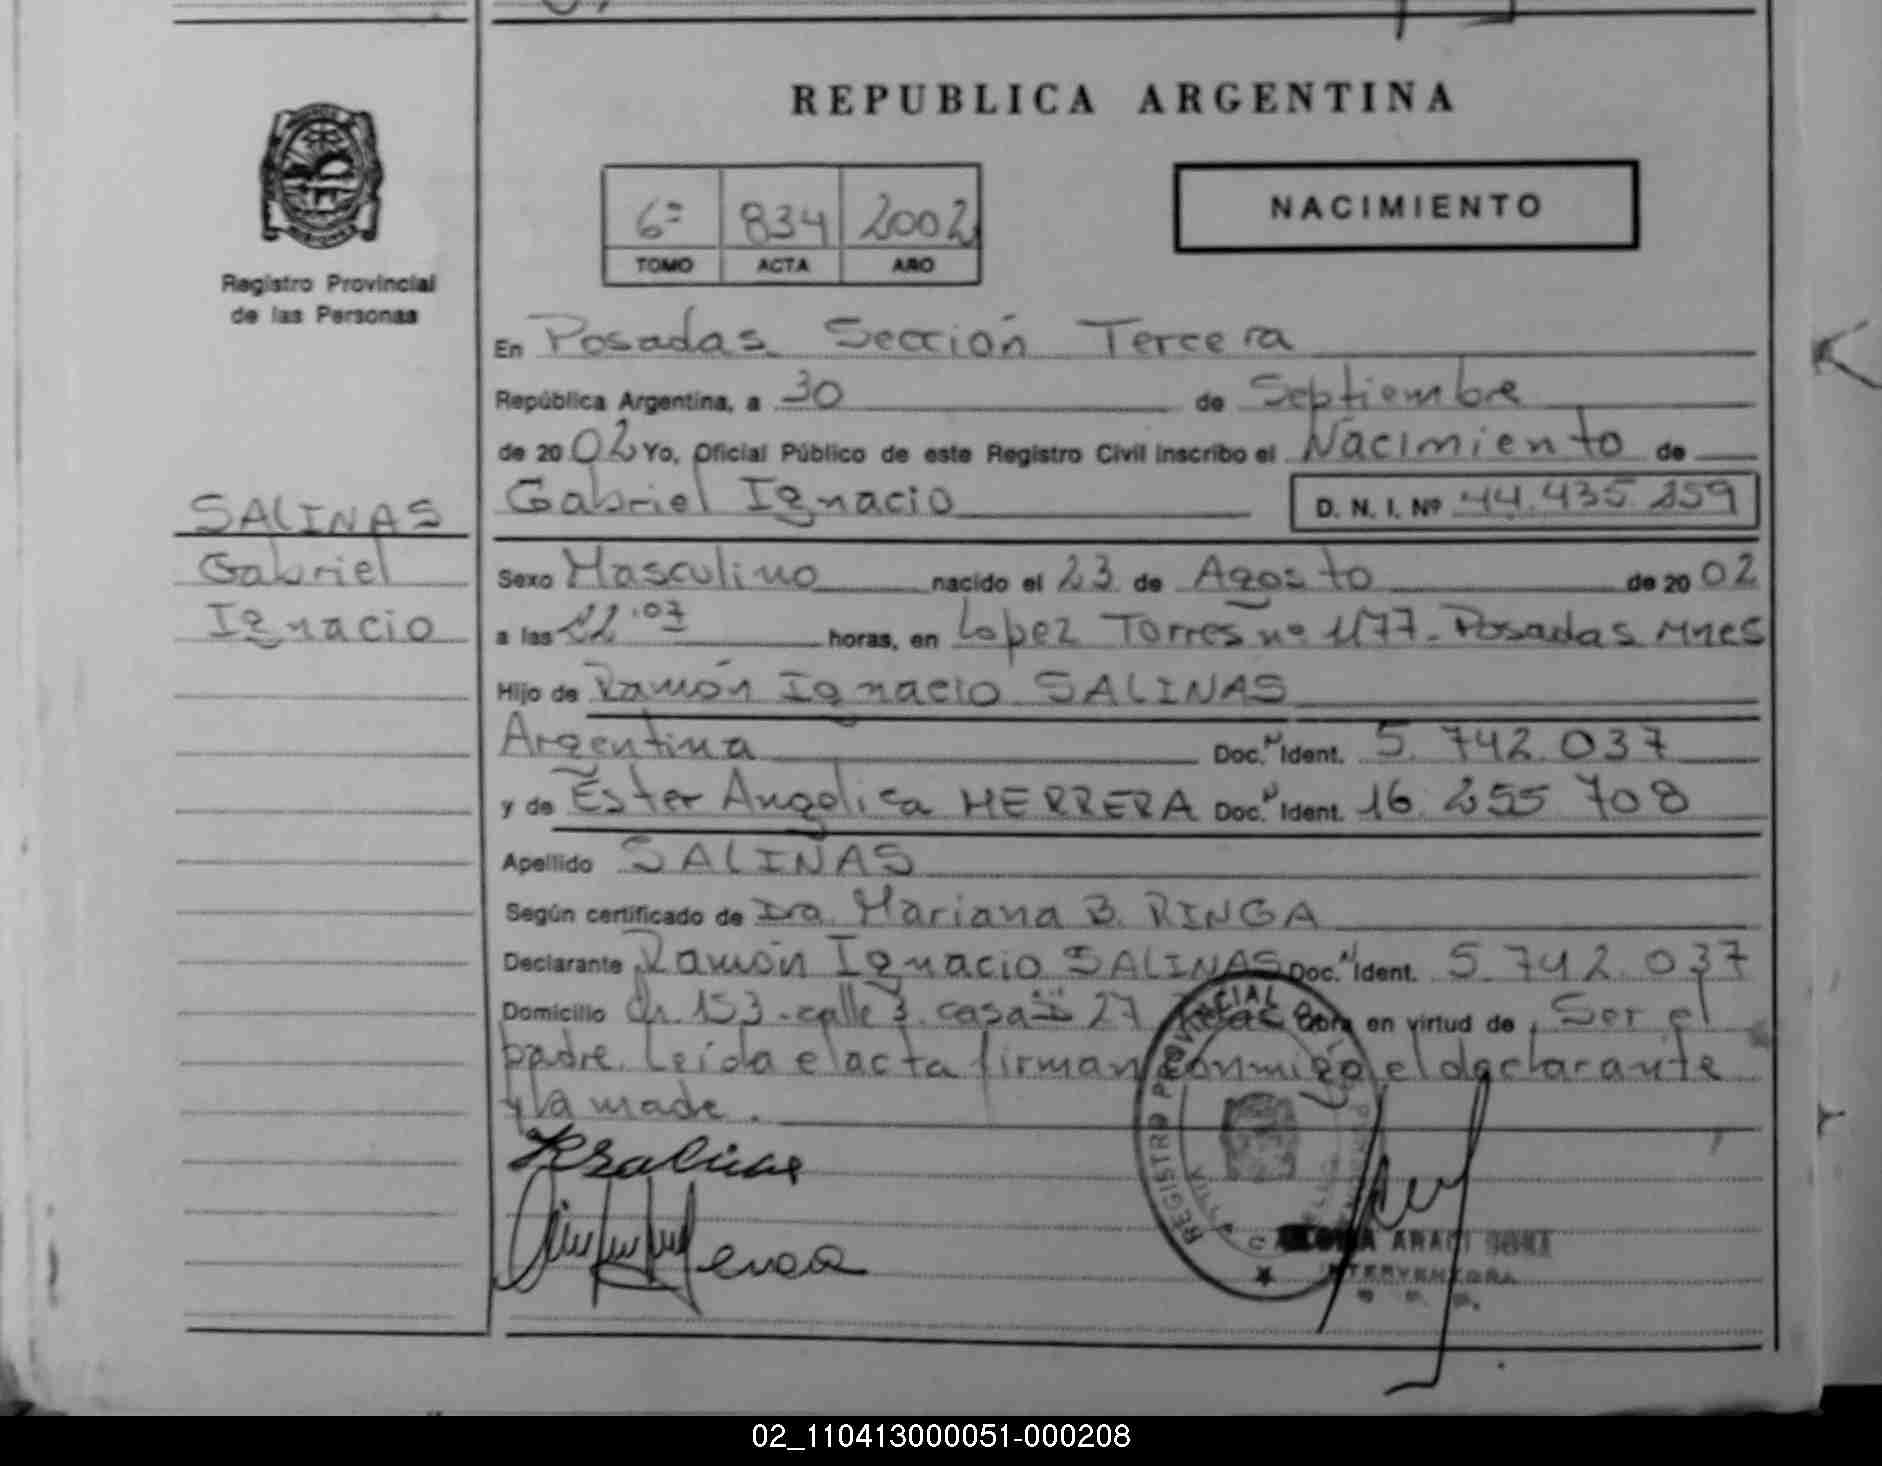 REPUBLICA ARGENTINA
6º 834 2002
TOMO ACTA AÑO
NACIMIENTO
Registro Provincial
de las Personas
En Posadas Sección Tercera
República Argentina, a 30 de Septiembre
de 2002 Yo, Oficial Público de este Registro Civil inscribo el Nacimiento de
Gabriel Ignacio D. N. I. Nº 44.435.259
SALINAS
Gabriel
Ignacio
Sexo Masculino nacido el 23 de Agosto de 2002
a las horas, en Lopez Torres nº 1177 - Posadas Mnes
Hijo de Ramón Ignacio SALINAS
Argentina Doc. Ident. 5.742.037
y de Ester Angelica HERRERA Doc. Ident. 16.255.708
Apellido SALINAS
Según certificado de Dra. Mariana B. RINGA
Declarante Ramón Ignacio SALINAS Doc. Ident. 5.742.037
Domicilio Ch. 153 - calle 3. casa 27 en virtud de Ser el
padre. Leída el acta firman conmigo el declarante
y la made.
REGISTRO PROVINCIAL DE LAS
ARACI
INTERVENTORA
02_110413000051-000208